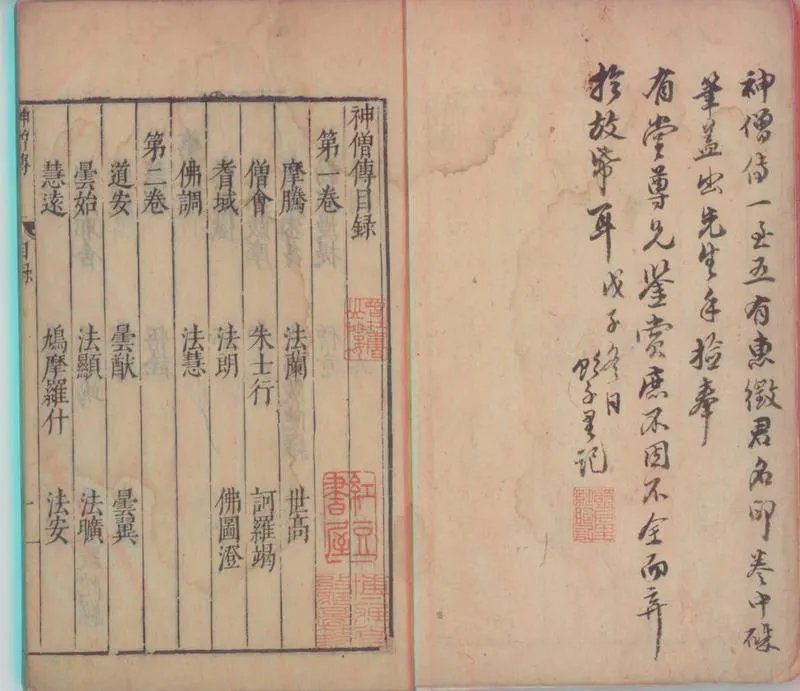 神僧傳一至五有惠徵君名印卷中硃
筆蓋出先生手撿奉
有堂尊兄鑒賞庶不因不全而弃
於故帋耳 戊子冬日 記
神僧傳目録
第一卷
摩騰 法蘭 世高
僧會 朱士行 訶羅竭
耆域 法朗 佛圖澄
佛調 法慧
第二卷
道安 曇猷 曇翼
曇始 法顯 法曠
慧遠 鳩摩羅什 法安
神僧傳 目録 一
紅豆
書屋